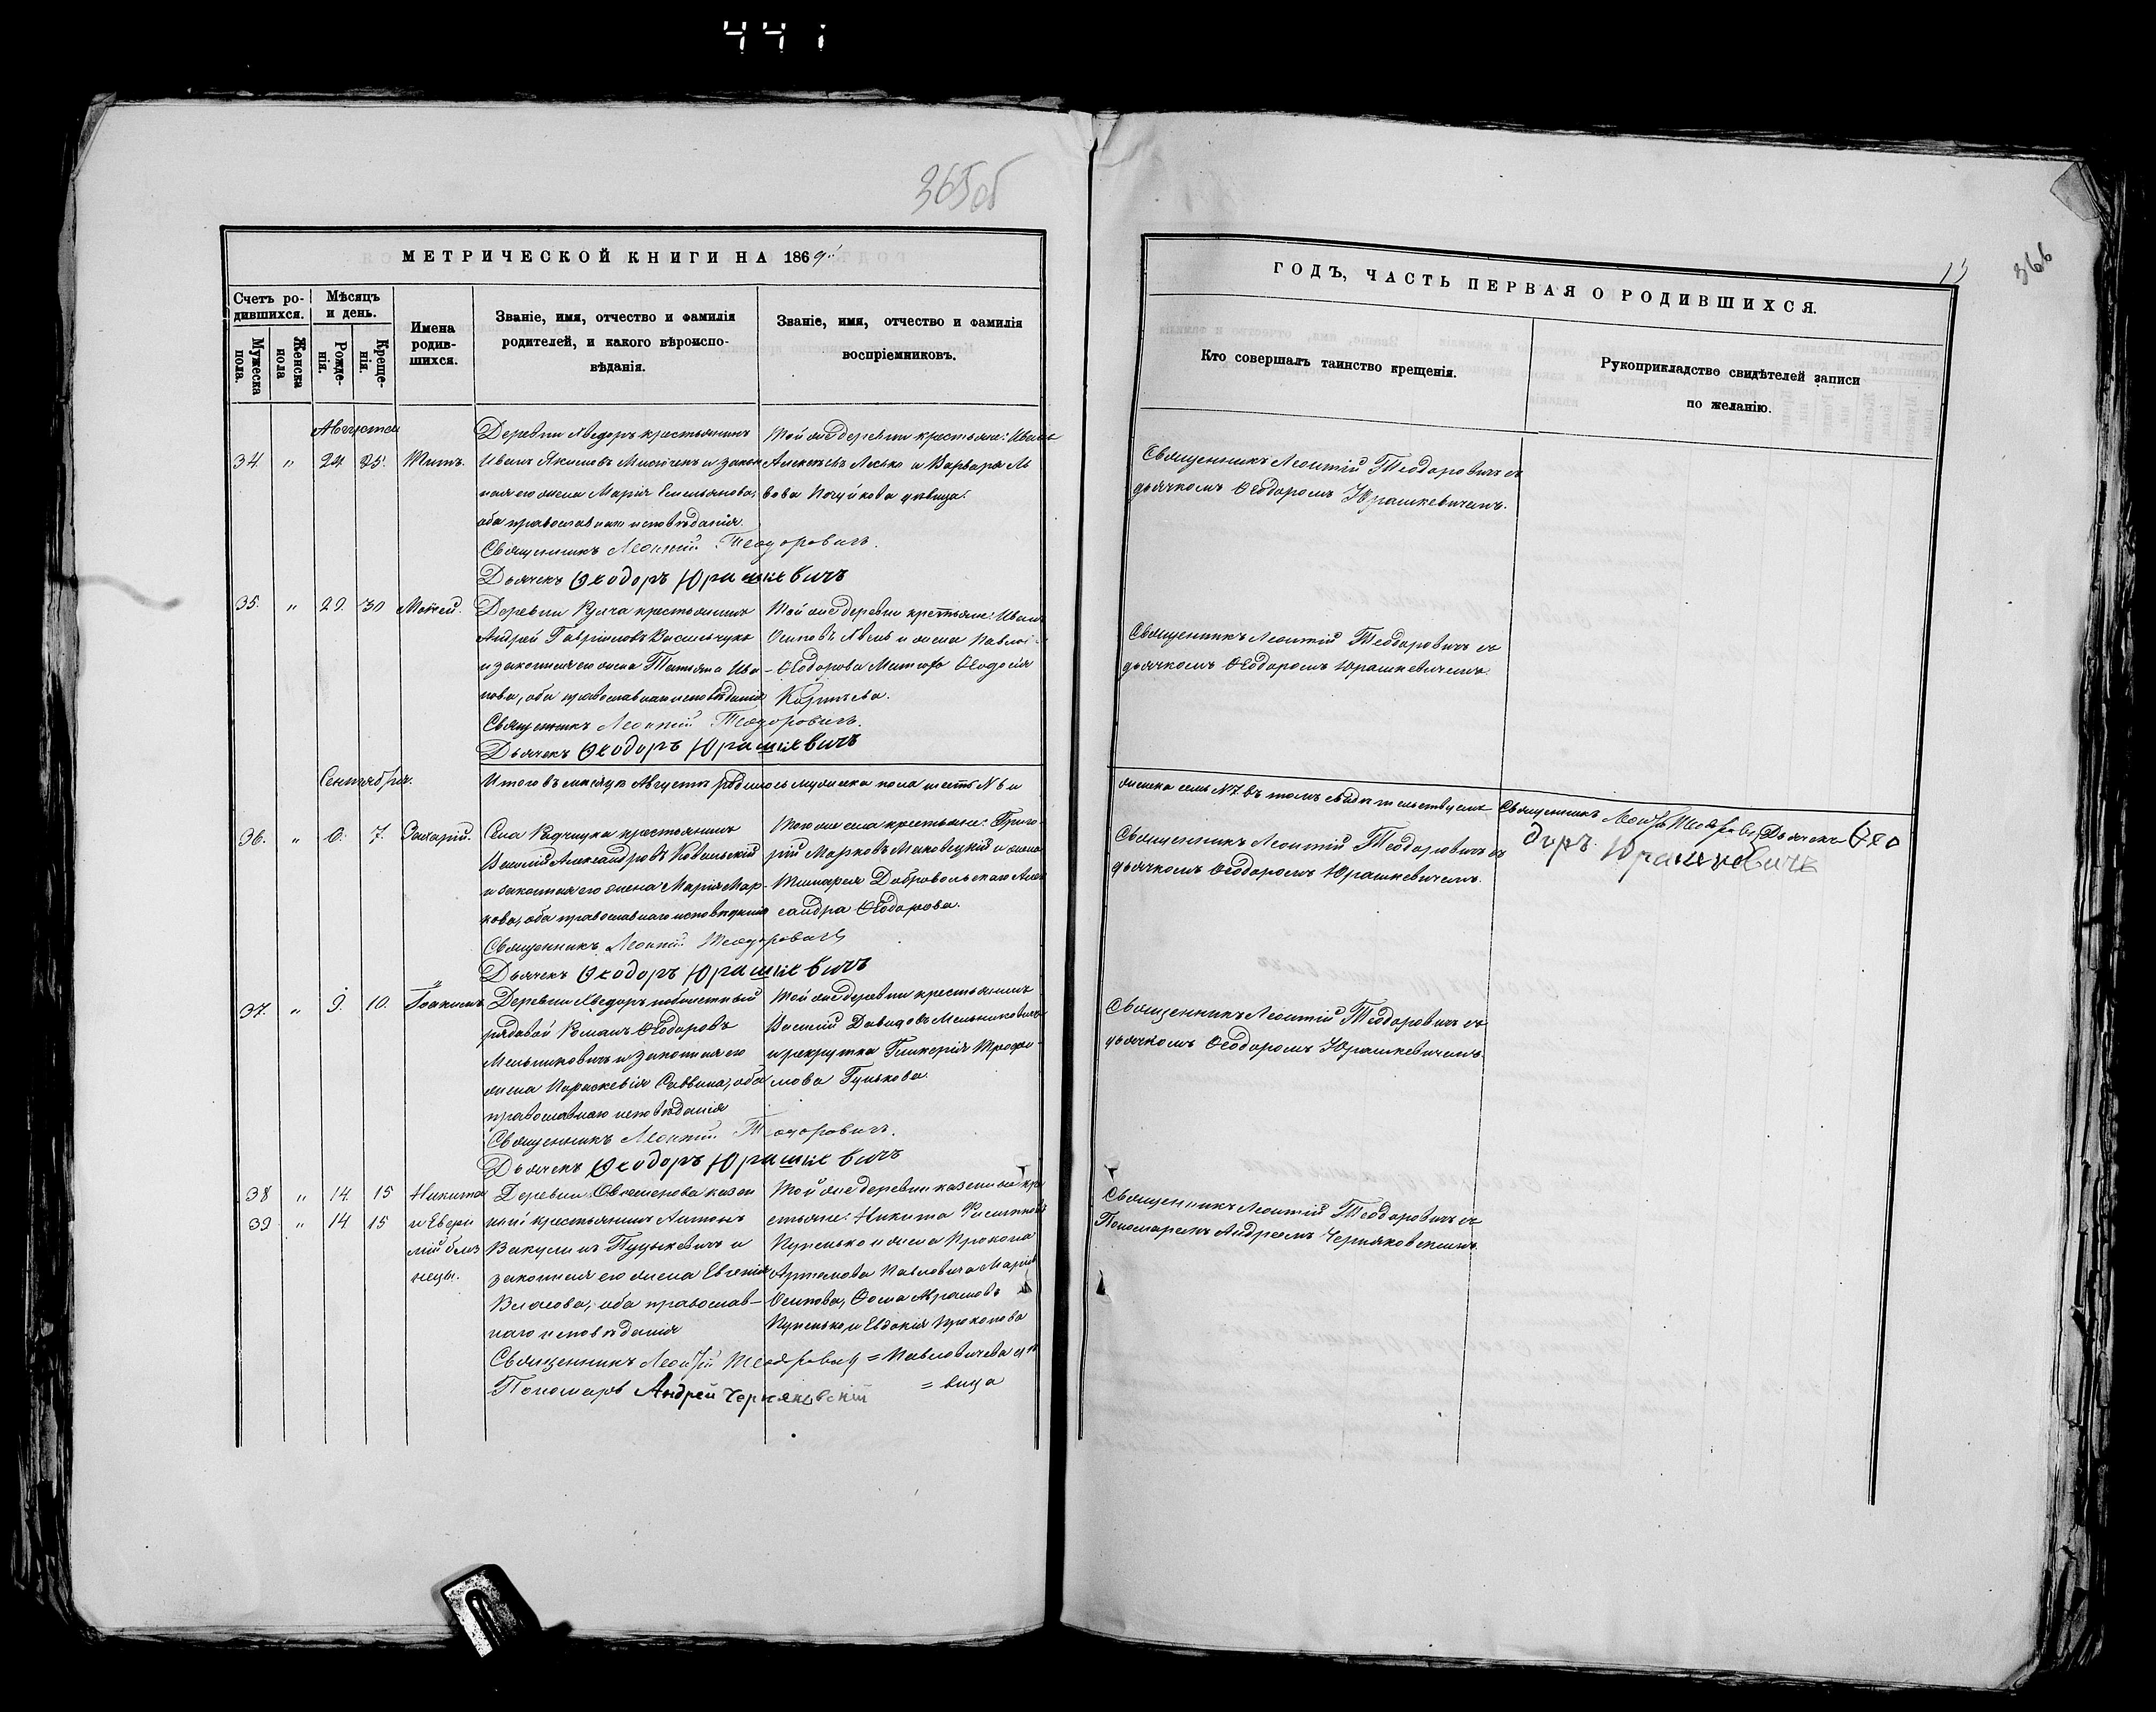 44 i
365 об
366
МЕТРИЧЕСКОЙ КНИГИ НА 1869
Счетъ ро-
дившихся.
Мѣсяцъ
и день.
Мужеска
пола.
Женска
пола
Рожде-
нія.
Креще-
нія.
Имена
родив-
шихся.
Званіе, имя, отчество и фамилія
родителей, и какого вѣроиспо-
вѣданія.
Званіе, имя, отчество и фамилія
воспріемниковъ.
Августа
34. " 24. 25. Титъ.
Деревни Хведоръ крестьянинъ
Иванъ Якимовъ и закон
ная его жена Марія Емельянова,
оба православнаго исповѣданія.
Священникъ Леонтій Теодоровичъ.
Дьячекъ Ѳеодоръ Юрашкевичъ
Той же деревни крестьяне: Иванъ
Алексѣевъ и Варвара Ль
вова дѣвица.
35. " 29. 30 Моисей.
Деревни крестьянинъ
Андрей Гавріиловъ Васильчукъ
и законная его жена Татьяна Ива-
нова, оба православнаго исповѣданія
Священникъ Леонтій Теодоровичъ.
Дьячекъ Ѳеодоръ Юрашкевичъ
Той же деревни крестьяне: Иванъ
Осиповъ и жена Павла
Ѳеодорова Ѳеодосія
Корнѣева.
Сентябрь.
Итого въ мѣсяцѣ Августѣ родилось мужеска пола шесть № 6 и
36. " 6. 7. Захарій.
Села Радчицка крестьянинъ
Василій Александровъ Ковальскій
и законная его жена Марія Мар-
кова, оба православнаго исповѣданія
Священникъ Леонтій Теодоровичъ
Дьячекъ Ѳеодоръ Юрашкевичъ
Того же села крестьяне: Григо-
рій Марковъ Маковецкій и жена
Добровольскаго Алек
сандра Ѳеодорова.
37. " 9. 10. Іоакимъ.
Деревни Хведоръ
рядовой Романъ Ѳеодоровъ
Мельниковичъ и законная его
жена Параскевія Саввина, оба
православнаго исповѣданія
Священникъ Леонтій Теодоровичъ.
Дьячекъ Ѳеодоръ Юрашкевичъ
Той же деревни крестьянинъ
Василій Давидовъ Мельниковичъ
и рекрутка Гликерія Трофи-
мова Гунькова.
38 " 14. 15 Никита
39 " 14 15 и Евфи
мій близ
нецы.
Деревни казен
ный крестьянинъ Антонъ
Викулинъ и
законная его жена Евгенія
Власова, оба православ-
наго исповѣданія
Священникъ Леонтій Теодоровичъ
Пономарь Андрей Черняковскій
Той же деревни казенные кре
стьяне: Никита
Купенько и жена Прокопа
Артемова Павловича Марія
Осипова, Ѳома Абрамовъ
Купенько и Евдокія Прокопова
= Павловичева дѣ
= вица
ГОДЪ, ЧАСТЬ ПЕРВАЯ О РОДИВШИХСЯ.
Кто совершалъ таинство крещенія.
Рукоприкладство свидѣтелей записи
по желанію.
Священникъ Леонтій Теодоровичъ съ
дьячкомъ Ѳеодоромъ Юрашкевичемъ.
Священникъ Леонтій Теодоровичъ съ
дьячкомъ Ѳеодоромъ Юрашкевичемъ.
женска семь № 7. въ томъ свидѣтельствуемъ Священникъ Леонтій Теодоровичъ, Дьячекъ Ѳео
доръ Юрашкевичъ
Священникъ Леонтій Теодоровичъ съ
дьячкомъ Ѳеодоромъ Юрашкевичемъ.
Священникъ Леонтій Теодоровичъ съ
дьячкомъ Ѳеодоромъ Юрашкевичемъ.
Священникъ Леонтій Теодоровичъ съ
Пономаремъ Андреемъ Черняковскимъ.